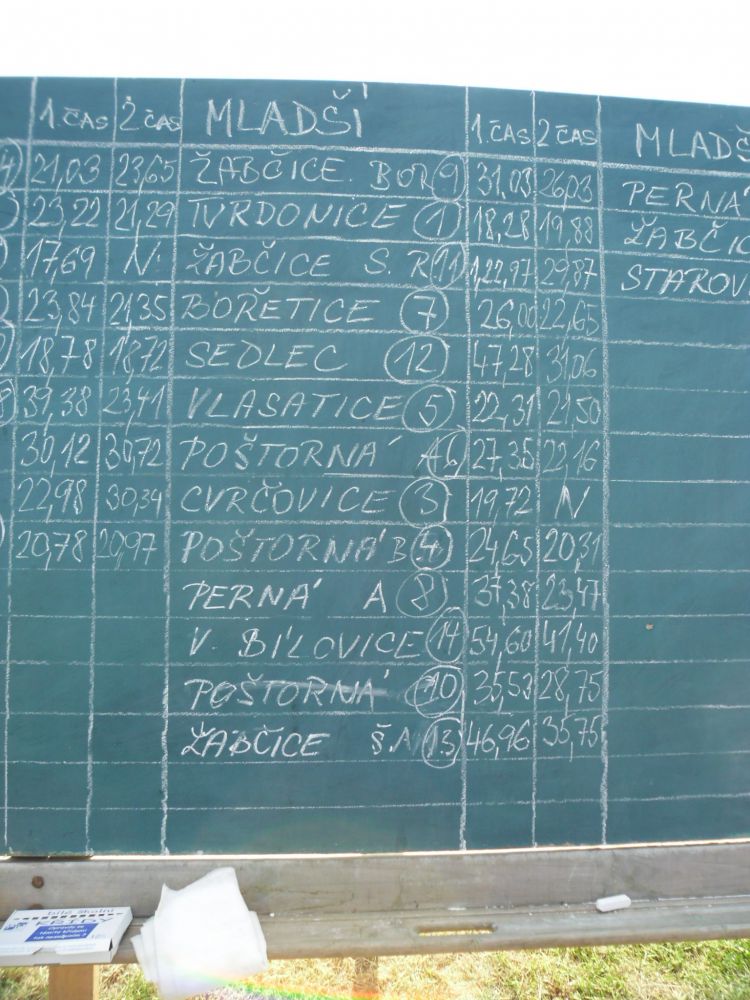 1.ČAS 2 ČAS MLADŠÍ 1.ČAS 2 ČAS MLADŠ
4 21,03 23,65 ŽABČICE BOR 9 31,03 26,03 PERNÁ
23,22 21,29 TVRDONICE 1 18,28 19,88 ŽABČIC
17,69 N ŽABČICE S.R 11 122,97 29,87 STAROV
23,84 21,35 BOŘETICE 7 26,00 22,65
18,78 18,72 SEDLEC 12 47,28 31,06
8 39,38 23,41 VLASATICE 5 22,31 21,50
30,12 30,72 POŠTORNÁ A 6 27,35 22,16
22,98 30,34 CVRČOVICE 3 19,72 N
20,78 20,97 POŠTORNÁ B 4 24,65 20,31
PERNÁ A 8 37,38 23,47
V. BÍLOVICE 14 54,60 41,40
POŠTORNÁ 10 35,53 28,75
ŽABČICE Š.A 13 46,96 35,75
bílé školní
KŘÍDY